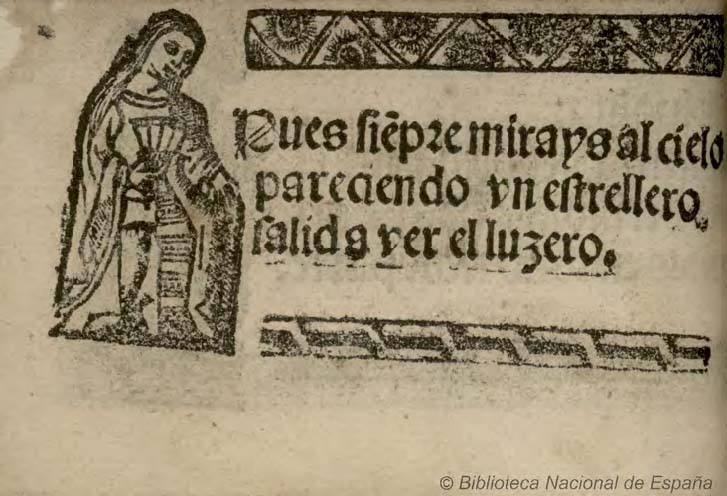 Pues siẽpre mirays al cielo
pareciendo vn estrellero,
salid a ver el luzero.
© Biblioteca Nacional de España